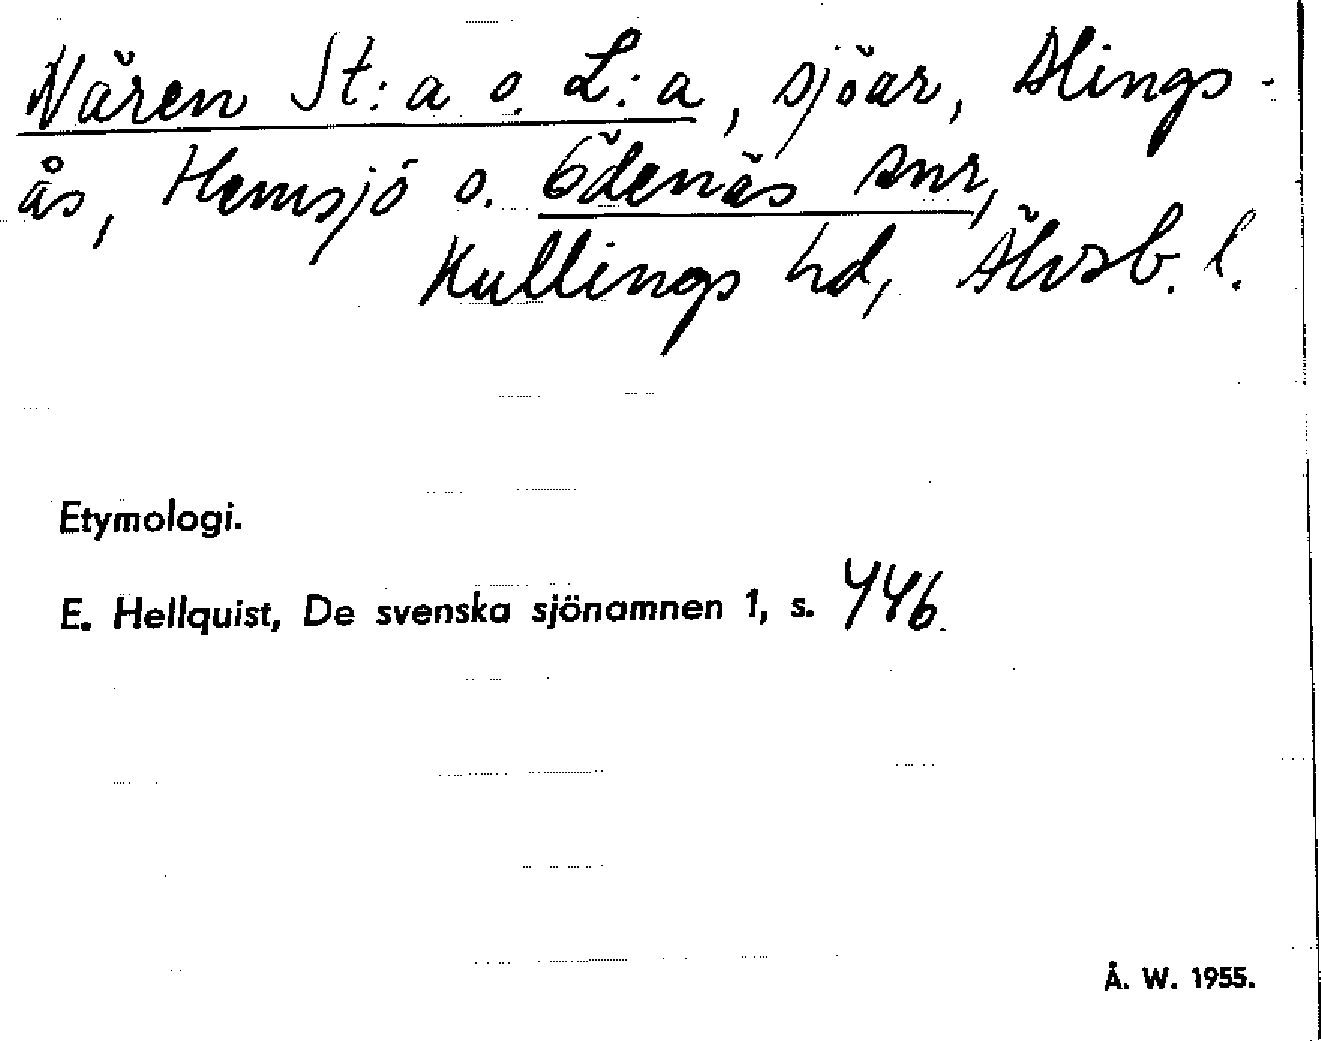 Nären St:a o. L:a, sjöar, Alings-
ås, Hemsjö o. Ödenäs snr,
Kullings hd, Älvsb. l.
Etymologi.
E. Hellquist, De svenska sjönamnen 1, s. 446.
Å. W. 1955.